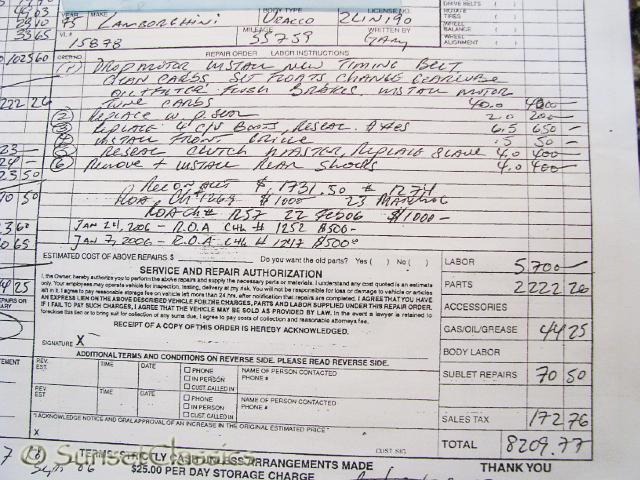 DRIVE BELTS
ROTATE TIRES
WHEEL BALANCE
WHEEL ALIGNMENT
YEAR 75 MAKE LAMBORGHINI BODY TYPE URACCO LICENSE NO. 2LIN190
15878 MILEAGE 55759 WRITTEN BY GARY
REPAIR ORDER LABOR INSTRUCTIONS
1025 60 (1) DROP MOTOR INSTALL NEW TIMING BELT
CLEAN CARBS SET FLOATS, CHANGE GEARLUBE
OIL+FILTER FLUSH BRAKES. INSTALL MOTOR
2222 26 TUNE CARBS 40.0 4000-
(2) REPLACE W.P. SEAL 2.0 200-
(3) REPLACE 4 C/V BOOTS, RESEAL AXLES 6.5 650-
(4) INSTALL FRONT .5 50-
(5) RESEAL CLUTCH MASTER, REPLACE SLAVE 4.0 400-
(6) REMOVE + INSTALL REAR SHOCKS 4.0 400-
$1,731.50 # 1274
ROA CH# 1269 $1000-
ROA CH# 1257 22 FEB06 $1000-
JAN 24, 2006 - R.O.A CHK # 1252 $500-
JAN 7, 2006 - R.O.A. CHK # 1247 $500-
ESTIMATED COST OF ABOVE REPAIRS $ Do you want the old parts? Yes ( ) No ( )
SERVICE AND REPAIR AUTHORIZATION
I, the Owner, hereby authorize you to perform the above repairs and supply the necessary parts or materials. I understand any cost quoted is an estimate
only. Your employees may operate vehicle for inspection, testing, delivery at my risk. You will not be responsible for loss or damage to vehicle or articles
left in it. I agree to pay reasonable storage on vehicle left more than 24 hrs. after notification that repairs are completed. I AGREE THAT YOU HAVE
AN EXPRESS LIEN ON THE ABOVE DESCRIBED VEHICLE FOR THE CHARGES, PARTS AND LABOR SUPPLIED UNDER THIS REPAIR ORDER.
IF I FAIL TO PAY SUCH CHARGES, I AGREE THAT THE VEHICLE MAY BE SOLD AS PROVIDED BY LAW. In the event a lawyer is retained to
foreclose this lien or to bring suit for collection of any sums due, I agree to pay costs of collection and reasonable attorneys fees.
RECEIPT OF A COPY OF THIS ORDER IS HEREBY ACKNOWLEDGED.
SIGNATURE X
ADDITIONAL TERMS AND CONDITIONS ON REVERSE SIDE. PLEASE READ REVERSE SIDE.
REV. EST. TIME DATE PHONE IN PERSON CUST CALLED IN NAME OF PERSON CONTACTED PHONE #
REV. EST. TIME DATE PHONE IN PERSON CUST CALLED IN NAME OF PERSON CONTACTED PHONE #
"I ACKNOWLEDGE NOTICE AND ORAL APPROVAL OF AN INCREASE IN THE ORIGINAL ESTIMATED PRICE"
X
CUST. SIG.
LABOR 5,700-
PARTS 2222 26
ACCESSORIES
GAS/OIL/GREASE 44 25
BODY LABOR
SUBLET REPAIRS 70 50
SALES TAX 172 76
TOTAL 8209.77
© SunsetClassics
TERMS: STRICTLY CASH UNLESS ARRANGEMENTS MADE
$25.00 PER DAY STORAGE CHARGE
THANK YOU